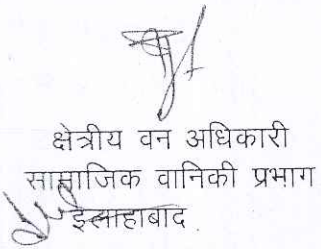 क्षेत्रीय वन अधिकारी
सामाजिक वानिकी प्रभाग
इलाहाबाद